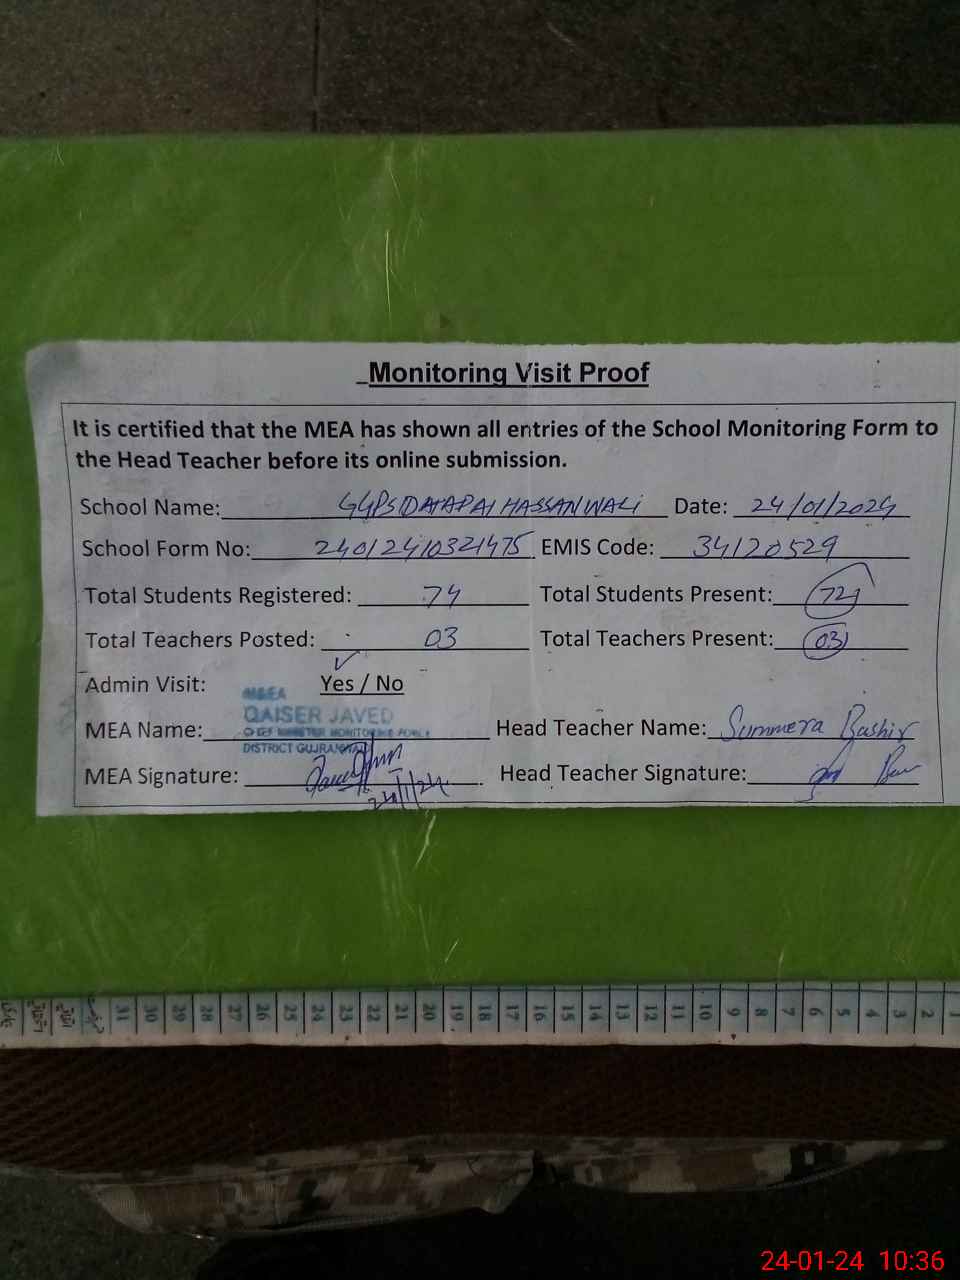 Monitoring Visit Proof
It is certified that the MEA has shown all entries of the School Monitoring Form to
the Head Teacher before its online submission.
School Name: GGPS DATAPAI HASSANWALI Date: 24/01/2024
School Form No: 24012410321475 EMIS Code: 34120529
Total Students Registered: 74 Total Students Present: 72
Total Teachers Posted: 03 Total Teachers Present: 03
Admin Visit: Yes / No
MEA
QAISER JAVED
MEA Name: CHIEF MINISTER MONITORING FORCE Head Teacher Name: Summera Bashir
DISTRICT GUJRANWALA
MEA Signature: Head Teacher Signature:
24/1/24
31 30 29 28 27 26 25 24 23 22 21 20 19 18 17 16 15 14 13 12 11 10 9 8 7 6 5 4 3 2 1
24-01-24 10:36